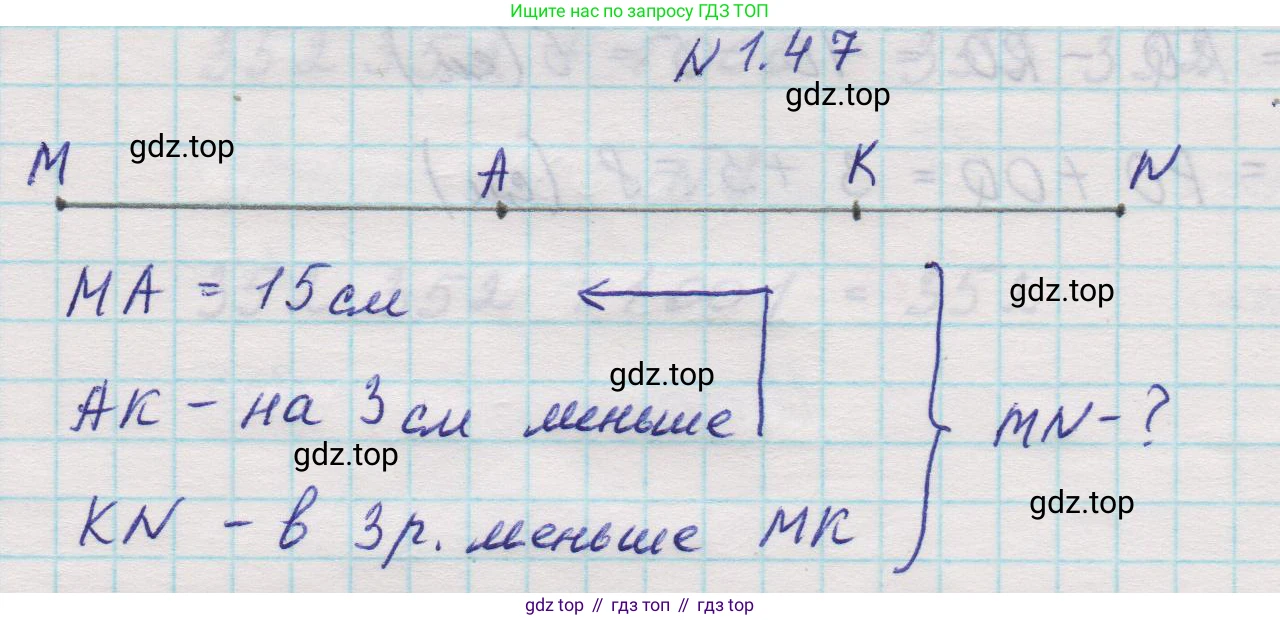 Ищите нас по запросу ГДЗ ТОП
N 1.47
gdz.top
gdz.top
M A K N
MA = 15 см
gdz.top
gdz.top
AK - на 3 см меньше
MN - ?
gdz.top
KN - в 3 р. меньше MK
gdz.top
gdz top // гдз топ // гдз top